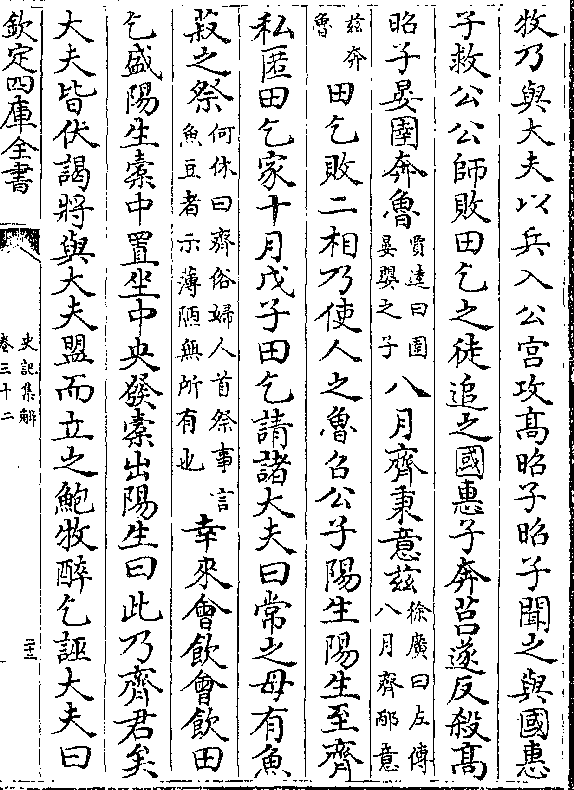 牧乃與大夫以兵入公宮攻髙昭子昭子聞之與國惠
子救公公師敗田乞之徒追之國惠子奔莒遂反殺髙
昭子晏圉奔魯賈逵曰圉晏嬰之子八月齊秉意兹徐廣曰左傳八月齊邴意
兹奔魯田乞敗二相乃使人之魯召公子陽生陽生至齊
私匿田乞家十月戊子田乞請諸大夫曰常之母有魚
菽之祭何休曰齊俗婦人首祭事言魚豆者示薄陋無所有也幸來會飲會飲田
乞盛陽生橐中置坐中央發橐出陽生曰此乃齊君矣
大夫皆伏謁將與大夫盟而立之鮑牧醉乞誣大夫曰
欽定四庫全書
史記集解
卷三十二
二十三